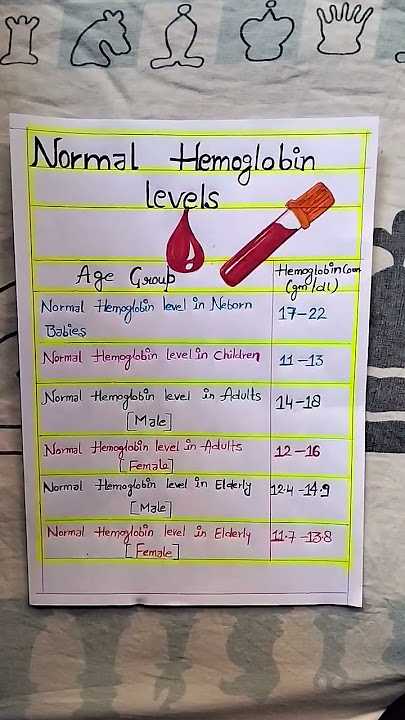 Normal Hemoglobin
levels
Age Group
Hemoglobin Coun
(gm/dl)
Normal Hemoglobin level in Neborn
Babies
17-22
Normal Hemoglobin level in Children
11-13
Normal Hemoglobin level in Adults
[Male]
14-18
Normal Hemoglobin level in Adults
[Female]
12-16
Normal Hemoglobin level in Elderly
[Male]
12.4-14.9
Normal Hemoglobin level in Elderly
[Female]
11.7-13.8